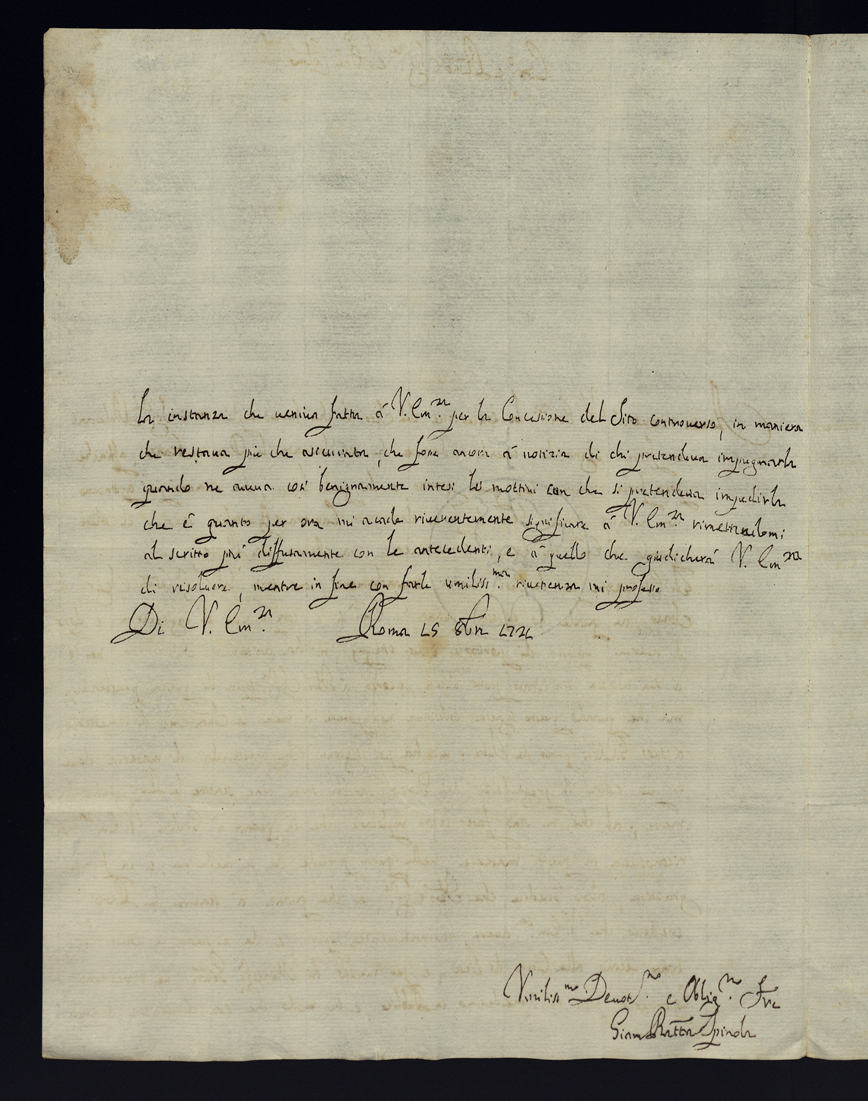 la instanza che veniva fatta á V. Em.za per la Concesione del Sito controverso, in maniera
che restava più che asicurata, che fose ancora á notizia di chi pretendeva impugnarla
quando ne aveva così benignamente intesi li mottivi con che si pretendeva impedirla
che é quanto per ora mi acade riverentemente significare á V. Em.za rimettendomi
al scritto più diffusamente con le antecedenti, e á quello che giudicherá V. Em.za
di risolvere, mentre in fine con farle umilis.ma riverenza mi profeso
Di V. Em.za Roma 15 8bre
Vmilis.mo Devot.mo e Oblig.mo Sre
Giam Batta Spinola